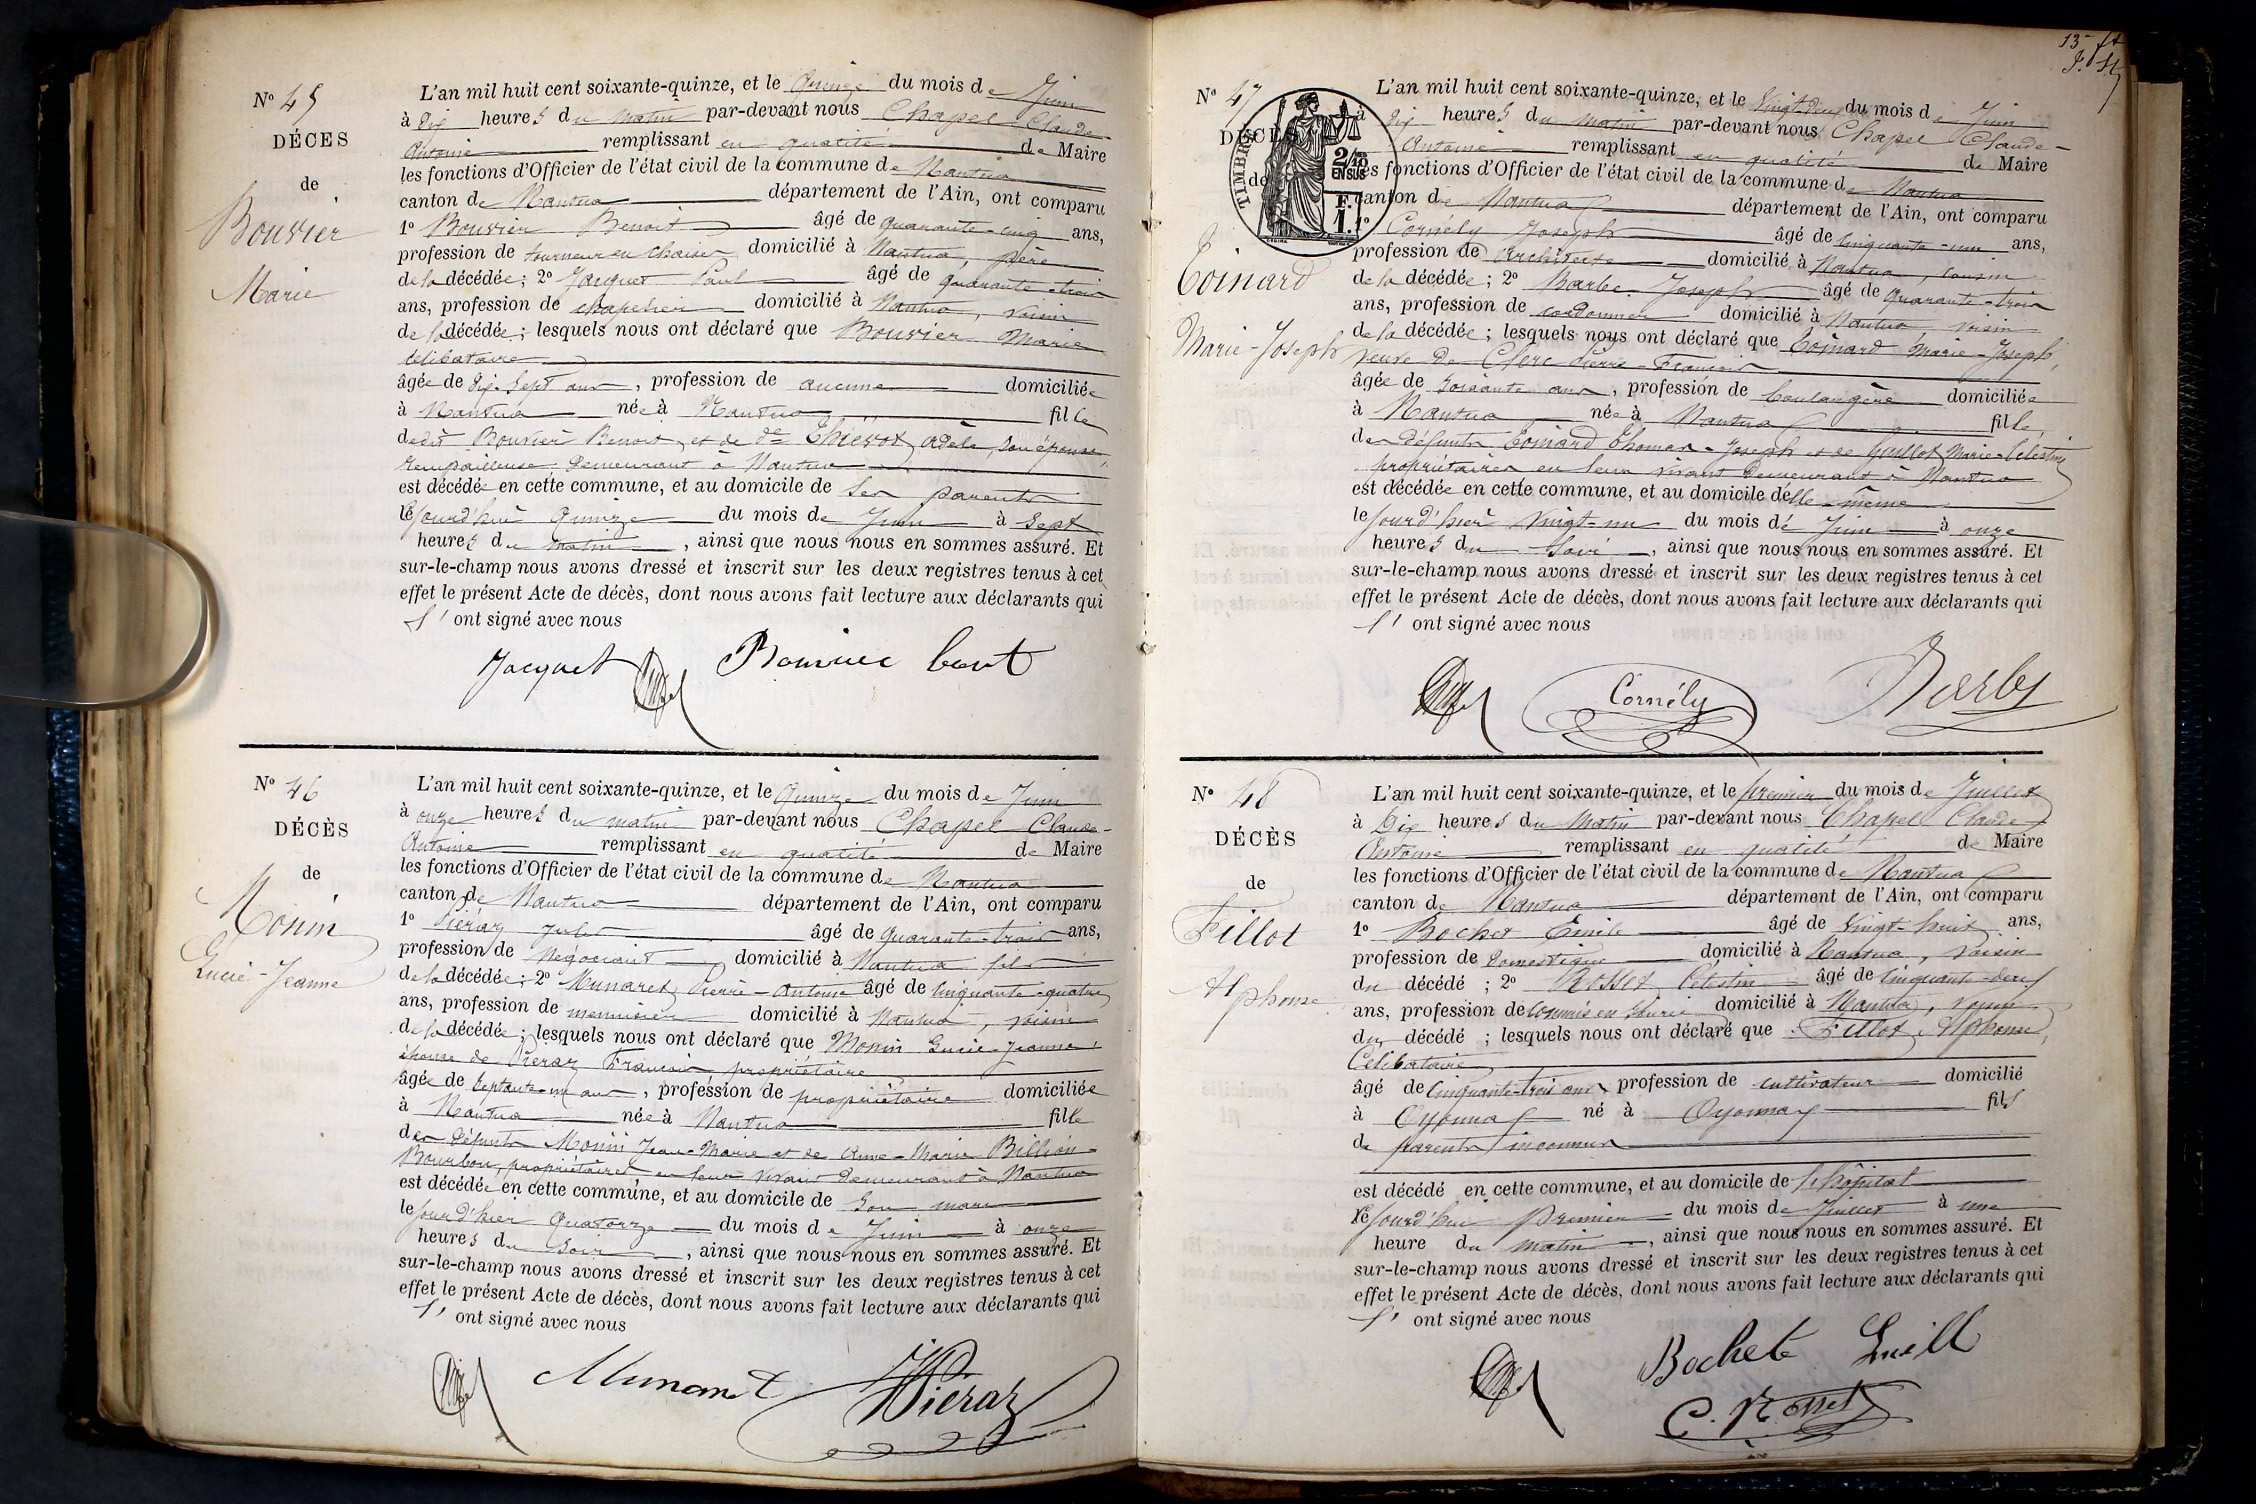 N° 45
DÉCES
de
Bouvier
Marie
L'an mil huit cent soixante-quinze, et le Quinze du mois de Juin
à dix heures du matin par-devant nous Chapel Claude-
Antoine remplissant en qualité de Maire
les fonctions d'Officier de l'état civil de la commune de Nantua
canton de Nantua département de l'Ain, ont comparu
1° Bouvier Benoit âgé de quarante-cinq ans,
profession de tourneur en chaises domicilié à Nantua, père
de la décédée; 2° Jacquet Paul âgé de quarante-trois
ans, profession de chapelier domicilié à Nantua, voisin
de la décédée; lesquels nous ont déclaré que Bouvier Marie
célibataire
âgée de dix-sept ans, profession de aucune domiciliée
à Nantua née à Nantua fille
dudit Bouvier Benoit, et de de Adèle, son épouse,
rempailleuse demeurant à Nantua
est décédée en cette commune, et au domicile de ses parents
lejourd'hui Quinze du mois de Juin à sept
heures du matin, ainsi que nous nous en sommes assuré. Et
sur-le-champ nous avons dressé et inscrit sur les deux registres tenus à cet
effet le présent Acte de décès, dont nous avons fait lecture aux déclarants qui
l' ont signé avec nous
Jacquet
N° 46
DÉCÈS
de
Monin
Lucie-Jeanne
L'an mil huit cent soixante-quinze, et le Quinze du mois de Juin
à onze heures du matin par-devant nous Chapel Claude-
Antoine remplissant en qualité de Maire
les fonctions d'Officier de l'état civil de la commune de Nantua
canton de Nantua département de l'Ain, ont comparu
1° Piéraz Jules âgé de quarante-trois ans,
profession de Négociant domicilié à Nantua fils
de la décédée; 2° Munaret Pierre-Antoine âgé de cinquante-quatre
ans, profession de menuisier domicilié à Nantua, voisin
de la décédée; lesquels nous ont déclaré que Monin Lucie-Jeanne,
épouse de Piéraz François propriétaire
âgée de septante-un ans, profession de propriétaire domiciliée
à Nantua née à Nantua fille
des défunts Monin Jean-Marie et de Anne-Marie Billion-
Bourbon, propriétaires en leur vivant demeurant à Nantua
est décédée en cette commune, et au domicile de son mari
lejourd'hier Quatorze du mois de Juin à onze
heures du soir, ainsi que nous nous en sommes assuré. Et
sur-le-champ nous avons dressé et inscrit sur les deux registres tenus à cet
effet le présent Acte de décès, dont nous avons fait lecture aux déclarants qui
l' ont signé avec nous
Munaret Piéraz
N° 47
DÉCÈS
de
Coinard
Marie-Joseph
TIMBRE
2/10
EN SUS
F.
1.
L'an mil huit cent soixante-quinze, et le Vingt-deux du mois de Juin
à dix heures du matin par-devant nous Chapel Claude-
Antoine remplissant en qualité de Maire
les fonctions d'Officier de l'état civil de la commune de Nantua
canton de Nantua département de l'Ain, ont comparu
1° Cornély Joseph âgé de cinquante-un ans,
profession de Architecte domicilié à Nantua, cousin
de la décédée; 2° Barbe Joseph âgé de quarante-trois
ans, profession de cordonnier domicilié à Nantua, voisin
de la décédée; lesquels nous ont déclaré que Coinard Marie-Joseph,
veuve de Clerc Pierre-François
âgée de soixante ans, profession de boulangère domiciliée
à Nantua née à Nantua fille,
des défunts Coinard Thomas-Joseph et de Goullot Marie-Célestine
propriétaires en leur vivant demeurant à Nantua
est décédée en cette commune, et au domicile d'elle-même
lejourd'hier vingt-un du mois de Juin à onze
heures du soir, ainsi que nous nous en sommes assuré. Et
sur-le-champ nous avons dressé et inscrit sur les deux registres tenus à cet
effet le présent Acte de décès, dont nous avons fait lecture aux déclarants qui
l' ont signé avec nous
Cornély
N° 48
DÉCÈS
de
Fillot
Alphonse
L'an mil huit cent soixante-quinze, et le premier du mois de Juillet
à Dix heures du matin par-devant nous Chapel Claude
Antoine remplissant en qualité de Maire
les fonctions d'Officier de l'état civil de la commune de Nantua
canton de Nantua département de l'Ain, ont comparu
1° Bochet Émile âgé de vingt-huit ans,
profession de domestique domicilié à Nantua, voisin
du décédé; 2° Rosset Célestin âgé de cinquante-deux
ans, profession de domicilié à Nantua, voisin
du décédé; lesquels nous ont déclaré que Fillot Alphonse,
Célibataire
âgé de cinquante-trois ans profession de cultivateur domicilié
à Oyonnax né à Oyonnax fils
de parents inconnus
est décédé en cette commune, et au domicile de l'hôpital
lejourd'hui Premier du mois de Juillet à une
heure du matin, ainsi que nous nous en sommes assuré. Et
sur-le-champ nous avons dressé et inscrit sur les deux registres tenus à cet
effet le présent Acte de décès, dont nous avons fait lecture aux déclarants qui
l' ont signé avec nous
Bochet
C. Rosset